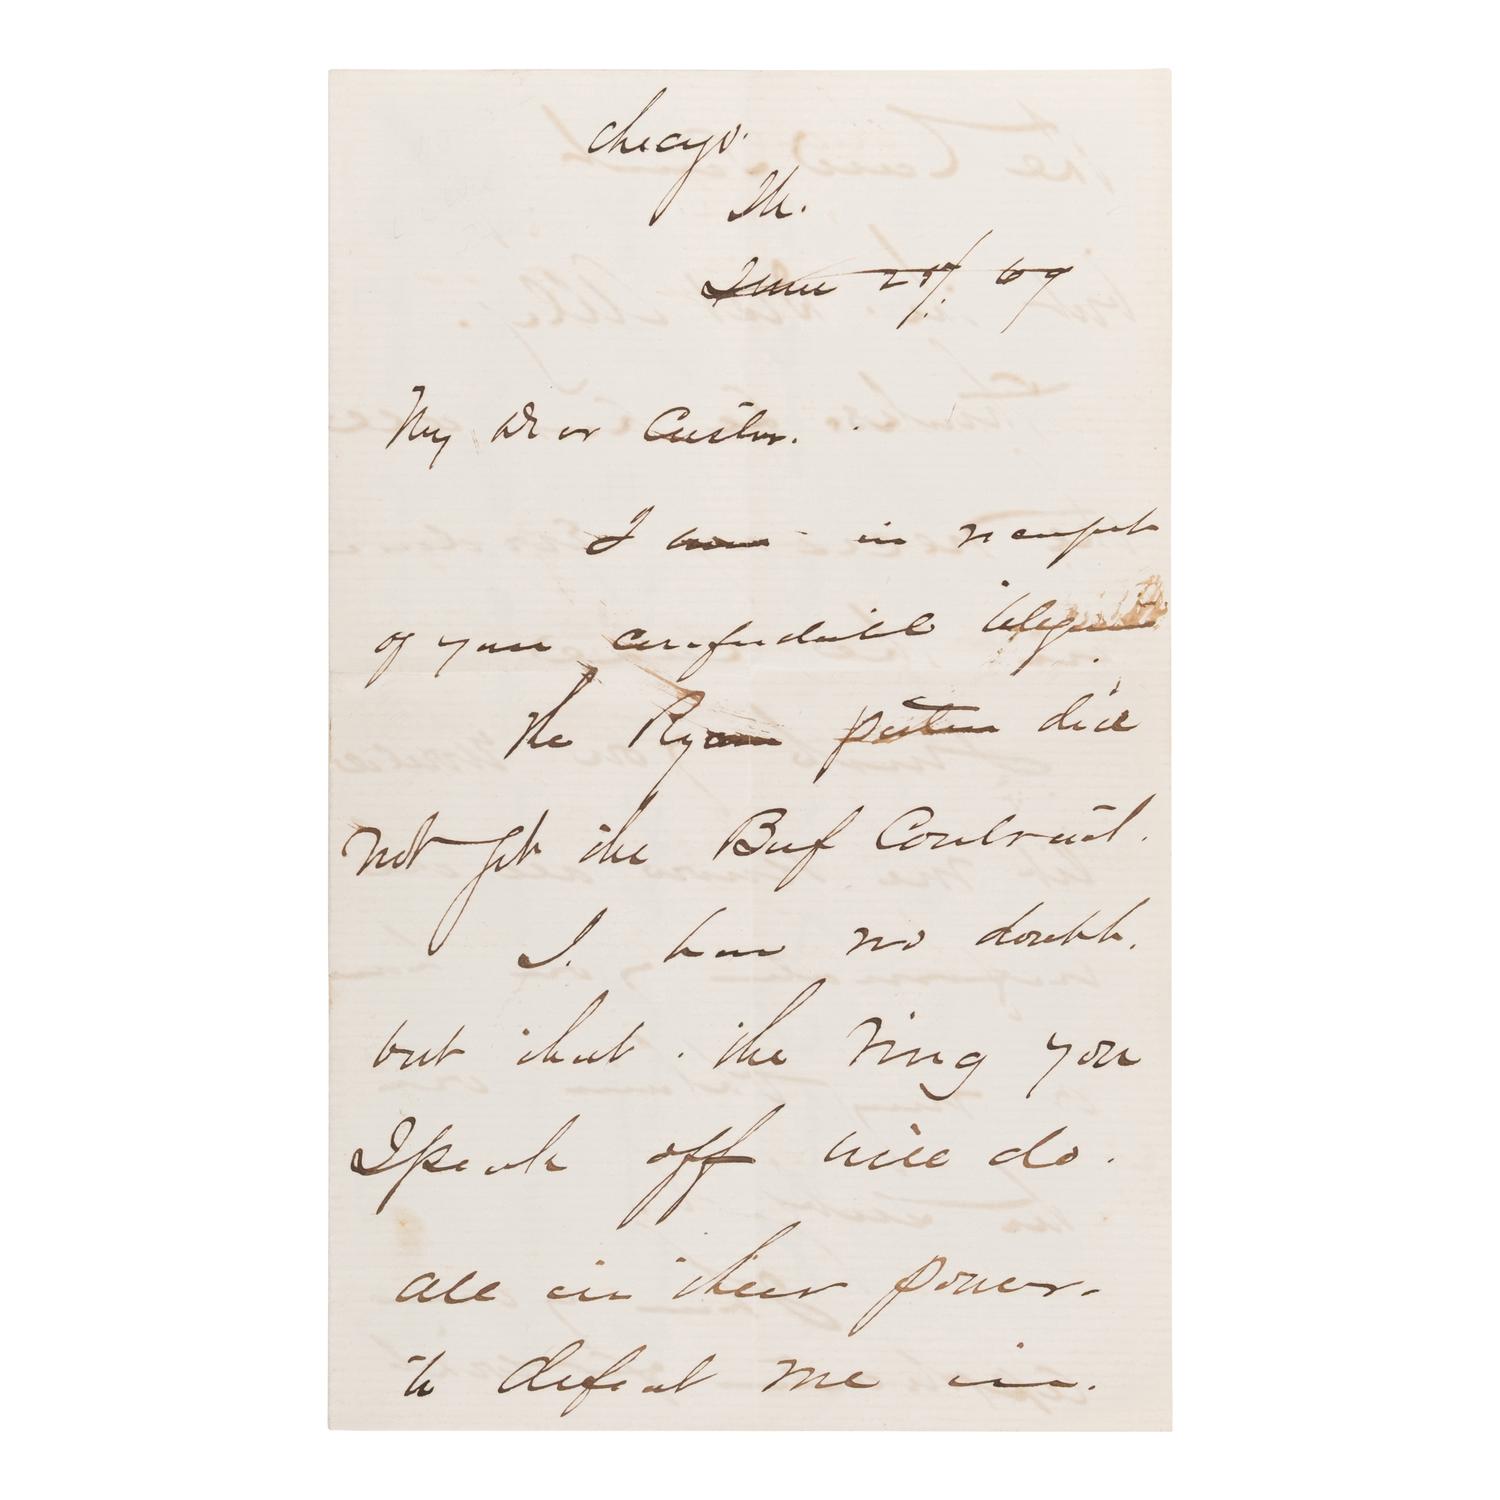 Chicago.
Ill.
June 21/69
My Dear Custer.
I am in receipt
of your confidential telegram
The Ryan party did
not get the Beef Contract.
I. have no doubt.
but that. the ring you
Speak off will do.
all in their power.
to defeat me in.